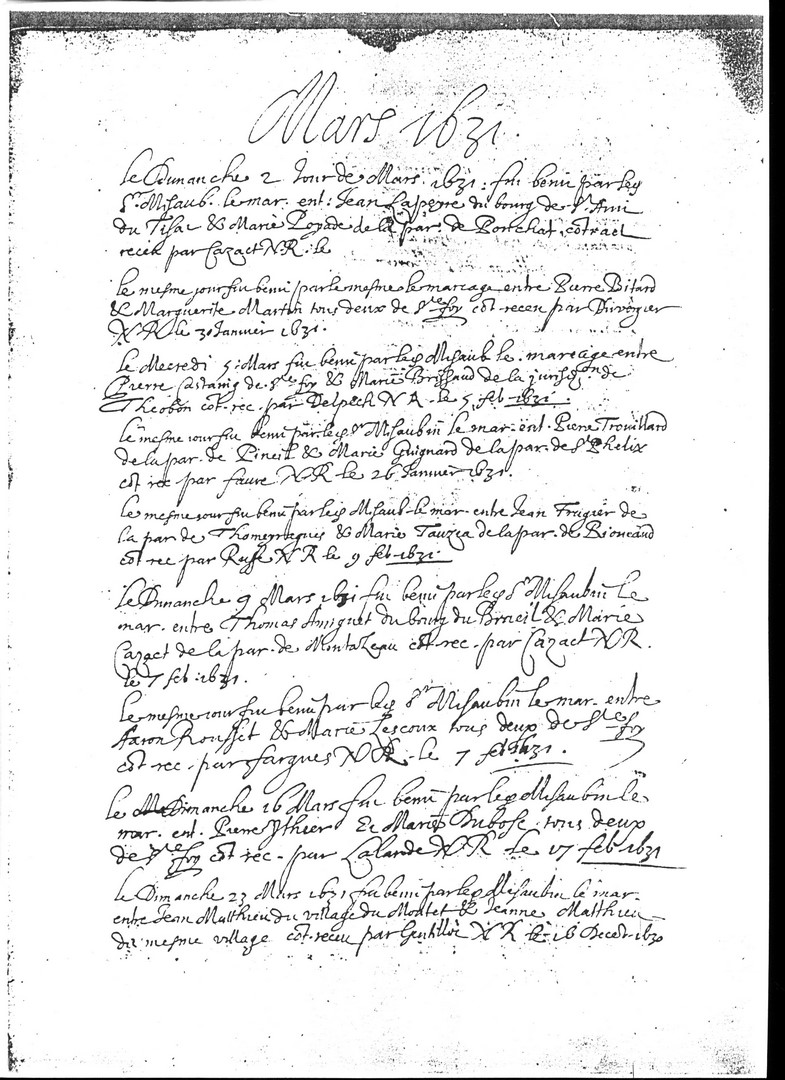 Mars 1631.
le Dimanche 2 Jour de Mars 1631: fut beni par led
Sr. Misaub. le mar. ent: Jean Lapeyre du bourg de St. Avui
du Tisac & Marie Poyade de la par. de Ponchat, cotract
receu par Cazact N.R. le
le mesme jour fut beni par le mesme le mariage entre Pierre Bitard
& Marguerite Martin tous deux de Ste foy cot. receu par Duverger
N R le 30 Janvier 1631.
le Mecredi 5 Mars fut beni par led Misaub le. mariage entre
Pierre Castanig de Ste foy & Marie Brissaud de la jurisdon de
Theobon cot. rec. par Delpech N R. le 5 feb. 1631.
le mesme jour fut beni par led Sr Misaubin le mar. ent. Pierre Trouillard
de la par. de Pineil & Marie Guignard de la par. de St Phelix
cot rec par faure N.R. le 26 Janvier 1631.
le mesme jour fut beni par led Misaub. le mar. entre Jean Frugier de
la par de Thomeyragues & Marie Tauzia de la par. de Rioucaud
cot rec par Ruffe N R le 9 feb. 1631
le Dimanche 9 Mars 1631 fut beni par led Sr Misaubin le
mar. entre Thomas Amiguet du bourg du Brueil & Marie
Cazact de la par. de Montazeau cot. rec. par Cazact N R.
le 7 feb. 1631.
le mesme jour fut beni par led Sr Misaubin le mar. entre
Aaron Rousset & Marie Lescoux tous deux de Ste foy
cot. rec. par fargues N R. le 7 feb. 1631.
le Dimanche 16 Mars fut beni par led Misaubin le
mar. ent. Pierre Ythier & Marie Dubosc. tous deux
de Ste foy cot rec. par Lalande N R le 17 feb. 1631
le Dimanche 23 Mars 1631 fut beni par led Misaubin le mar.
entre Jean Matthieu du village du Montet & Jeanne Matthieu
du mesme village cot. receu par Gentillot N R le 16 Decer. 1630